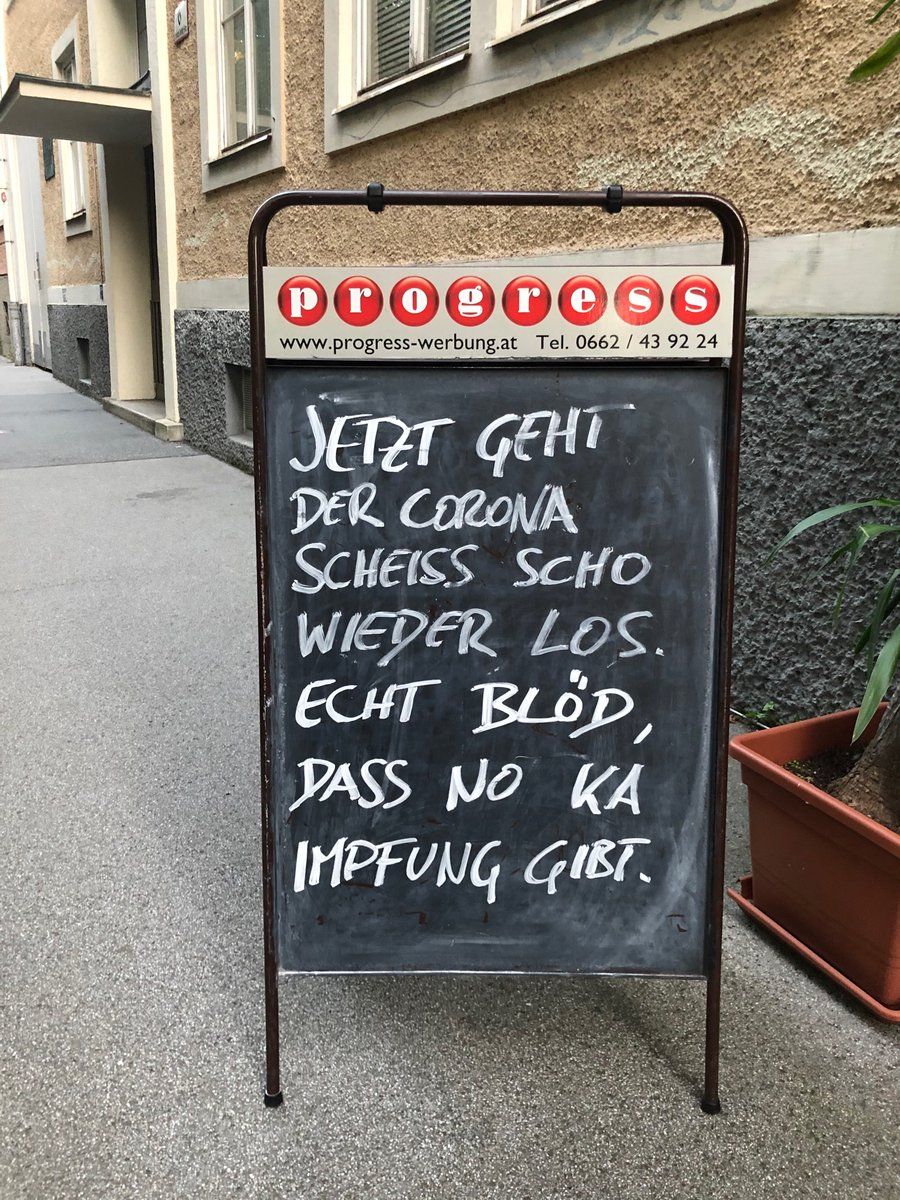 progress
www.progress-werbung.at Tel. 0662 / 43 92 24
JETZT GEHT
DER CORONA
SCHEISS SCHO
WIEDER LOS.
ECHT BLÖD,
DASS NO KA
IMPFUNG GIBT.